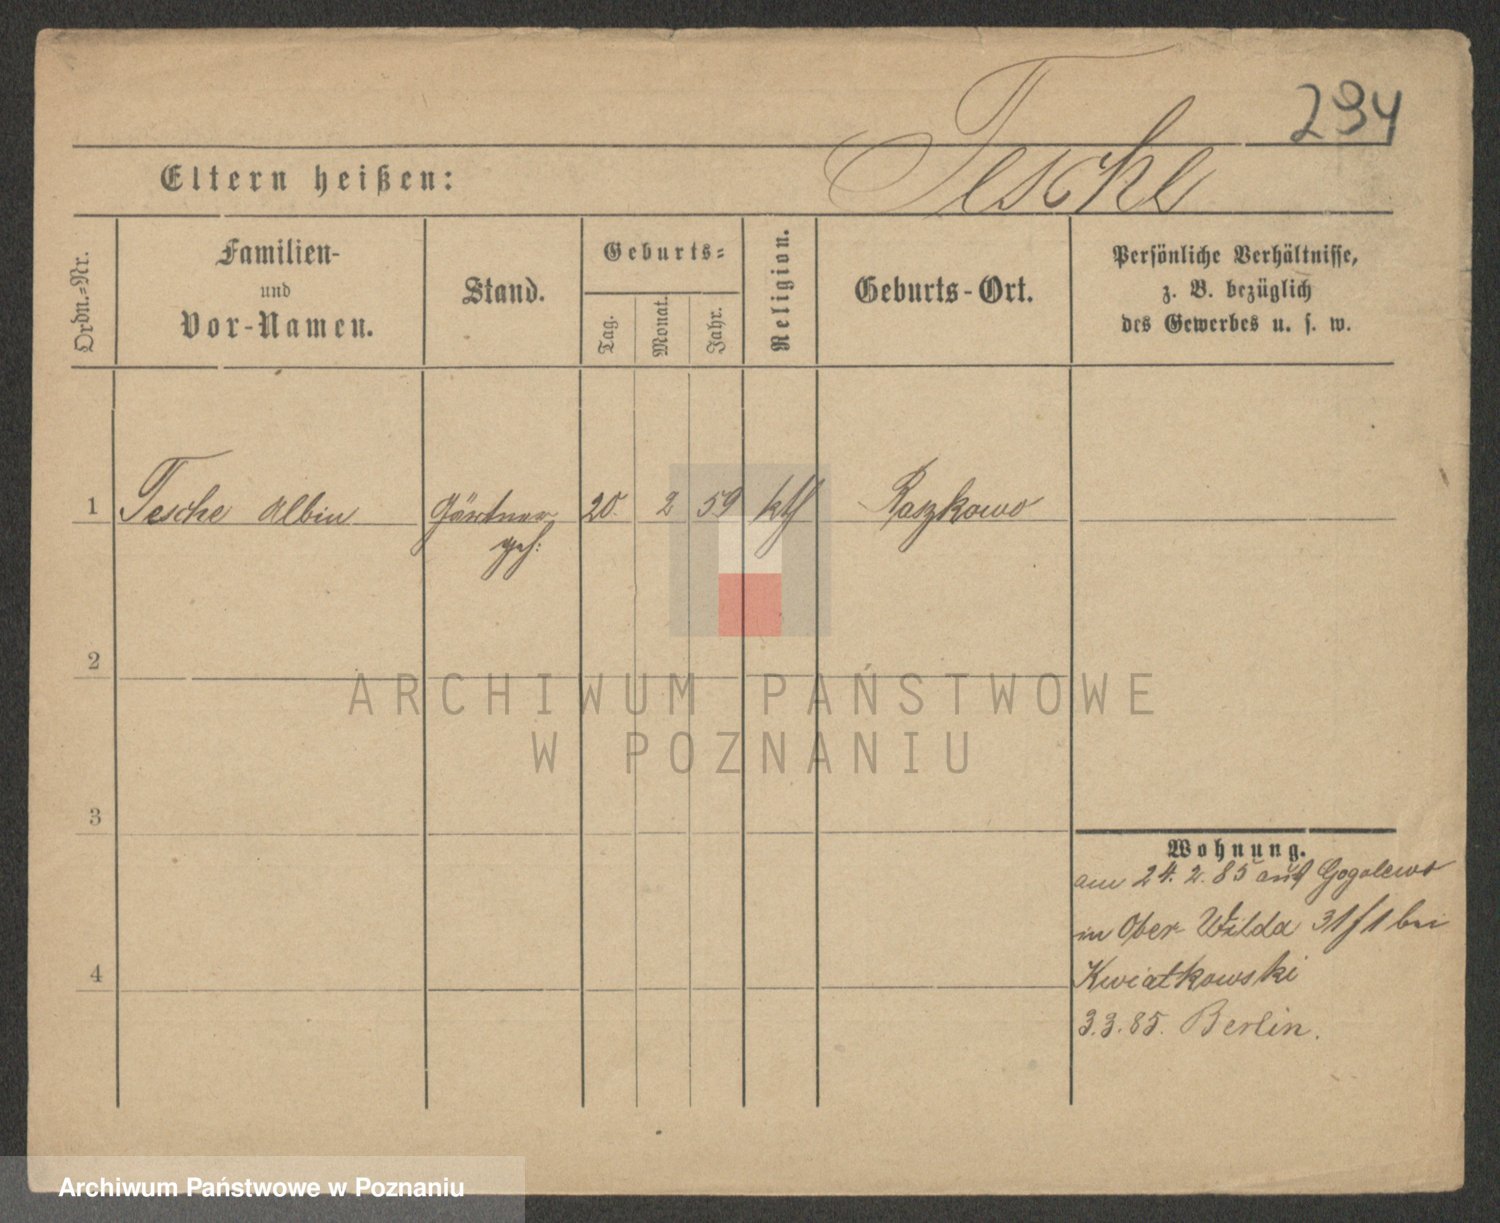 294
Tesche
Eltern heißen:
Ordn.-Nr.
Familien-
und
Vor-Namen.
Stand.
Geburts-
Tag.
Monat.
Jahr.
Religion.
Geburts-Ort.
Persönliche Verhältnisse,
z. B. bezüglich
des Gewerbes u. s. w.
1 Tesche Albin Gärtner 20 2 59 kth Raszkowo
geh:
2
ARCHIWUM PAŃSTWOWE
W POZNANIU
3
Wohnung.
am 24.2.85 aus Gogolewo
in Ober Wilda 31 f 1 bei
4
Kwiatkowski
3.3.85. Berlin.
Archiwum Państwowe w Poznaniu